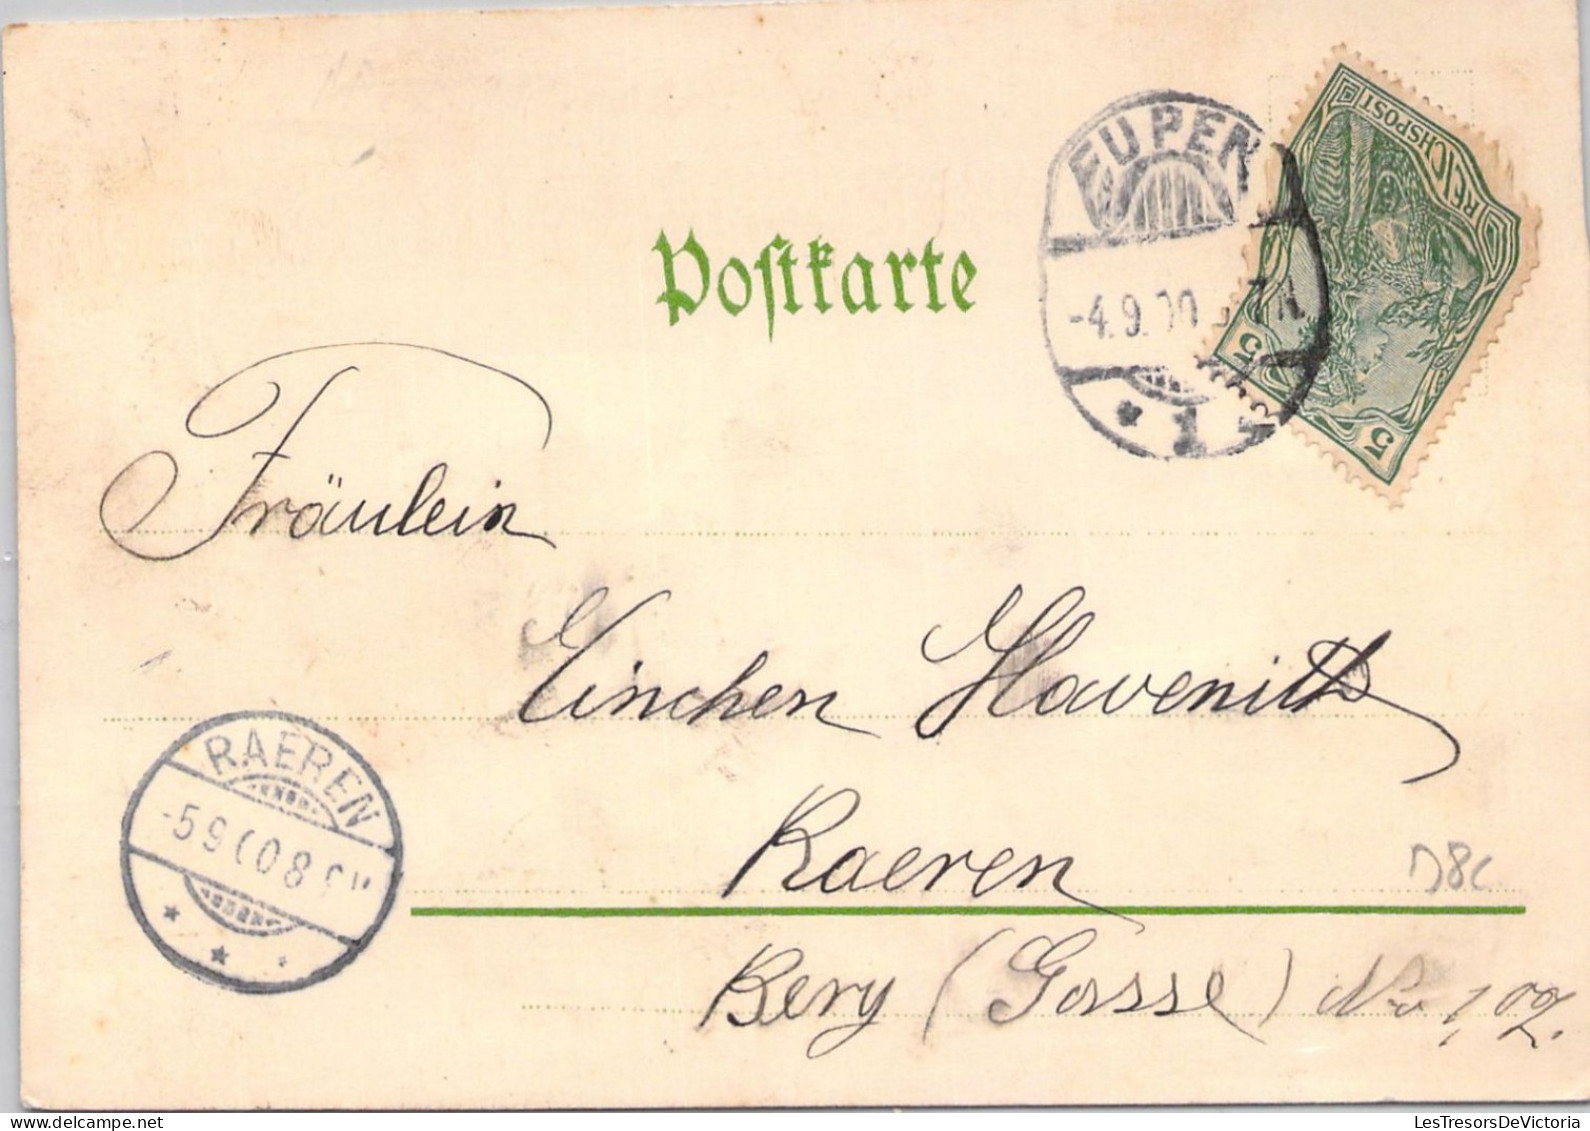 Postkarte
EUPEN
-4.9.00
1
REICHSPOST
5
5
Fräulein
Linchen Havenith
Raeren
Berg (Gasse) No 109.
RAEREN
-5 9 00 8
D8c
LesTresorsDeVictoria